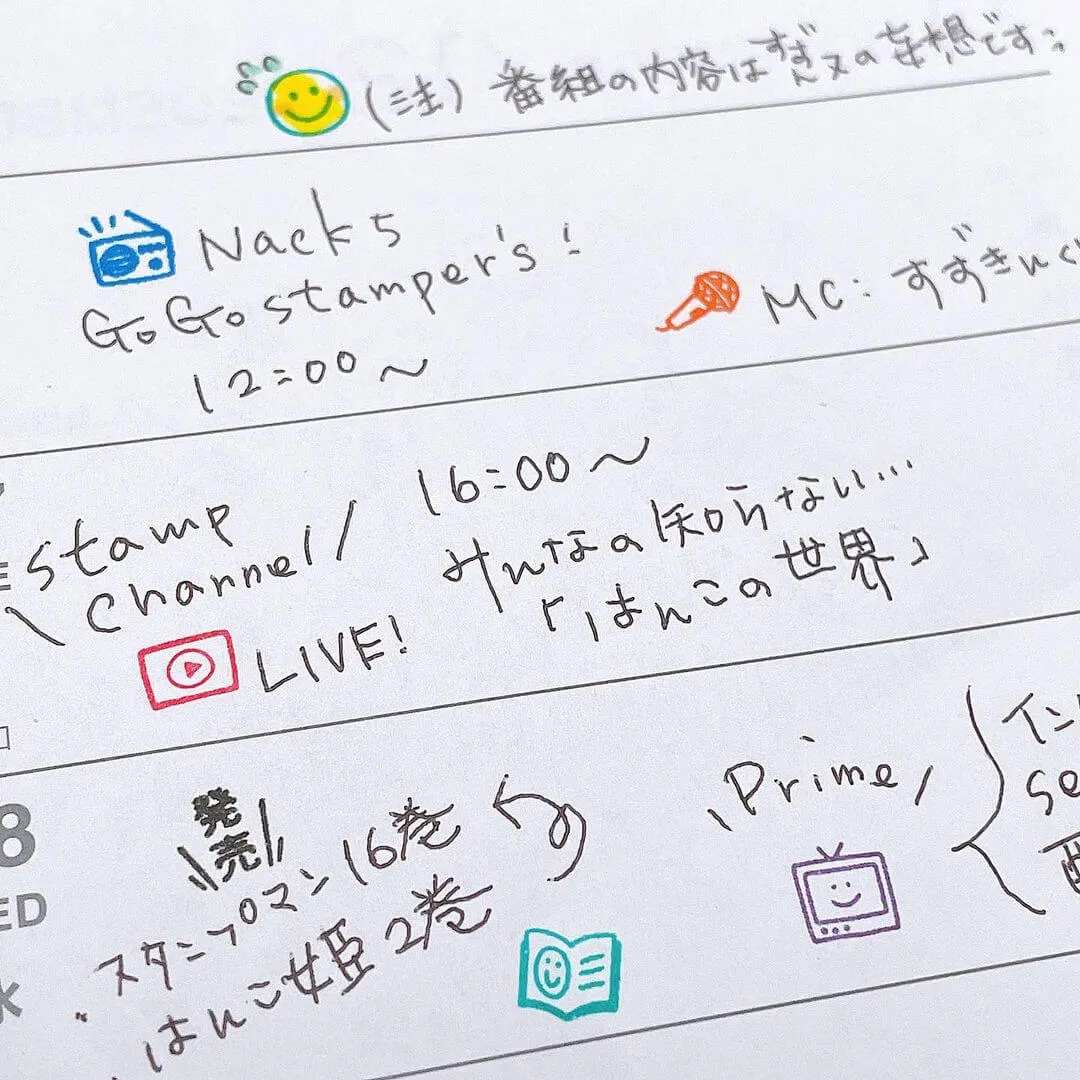 (注) 番組の内容はすずんヌの妄想です
Nack 5
GoGo stamper's!
12:00〜
MC: すずきいく
stamp
Channel
16:00〜
みんなの知らない…
「はんこの世界」
LIVE!
8
ED
発売
スタンプマン 16巻
はんこ姫 2巻
Prime
イン
se